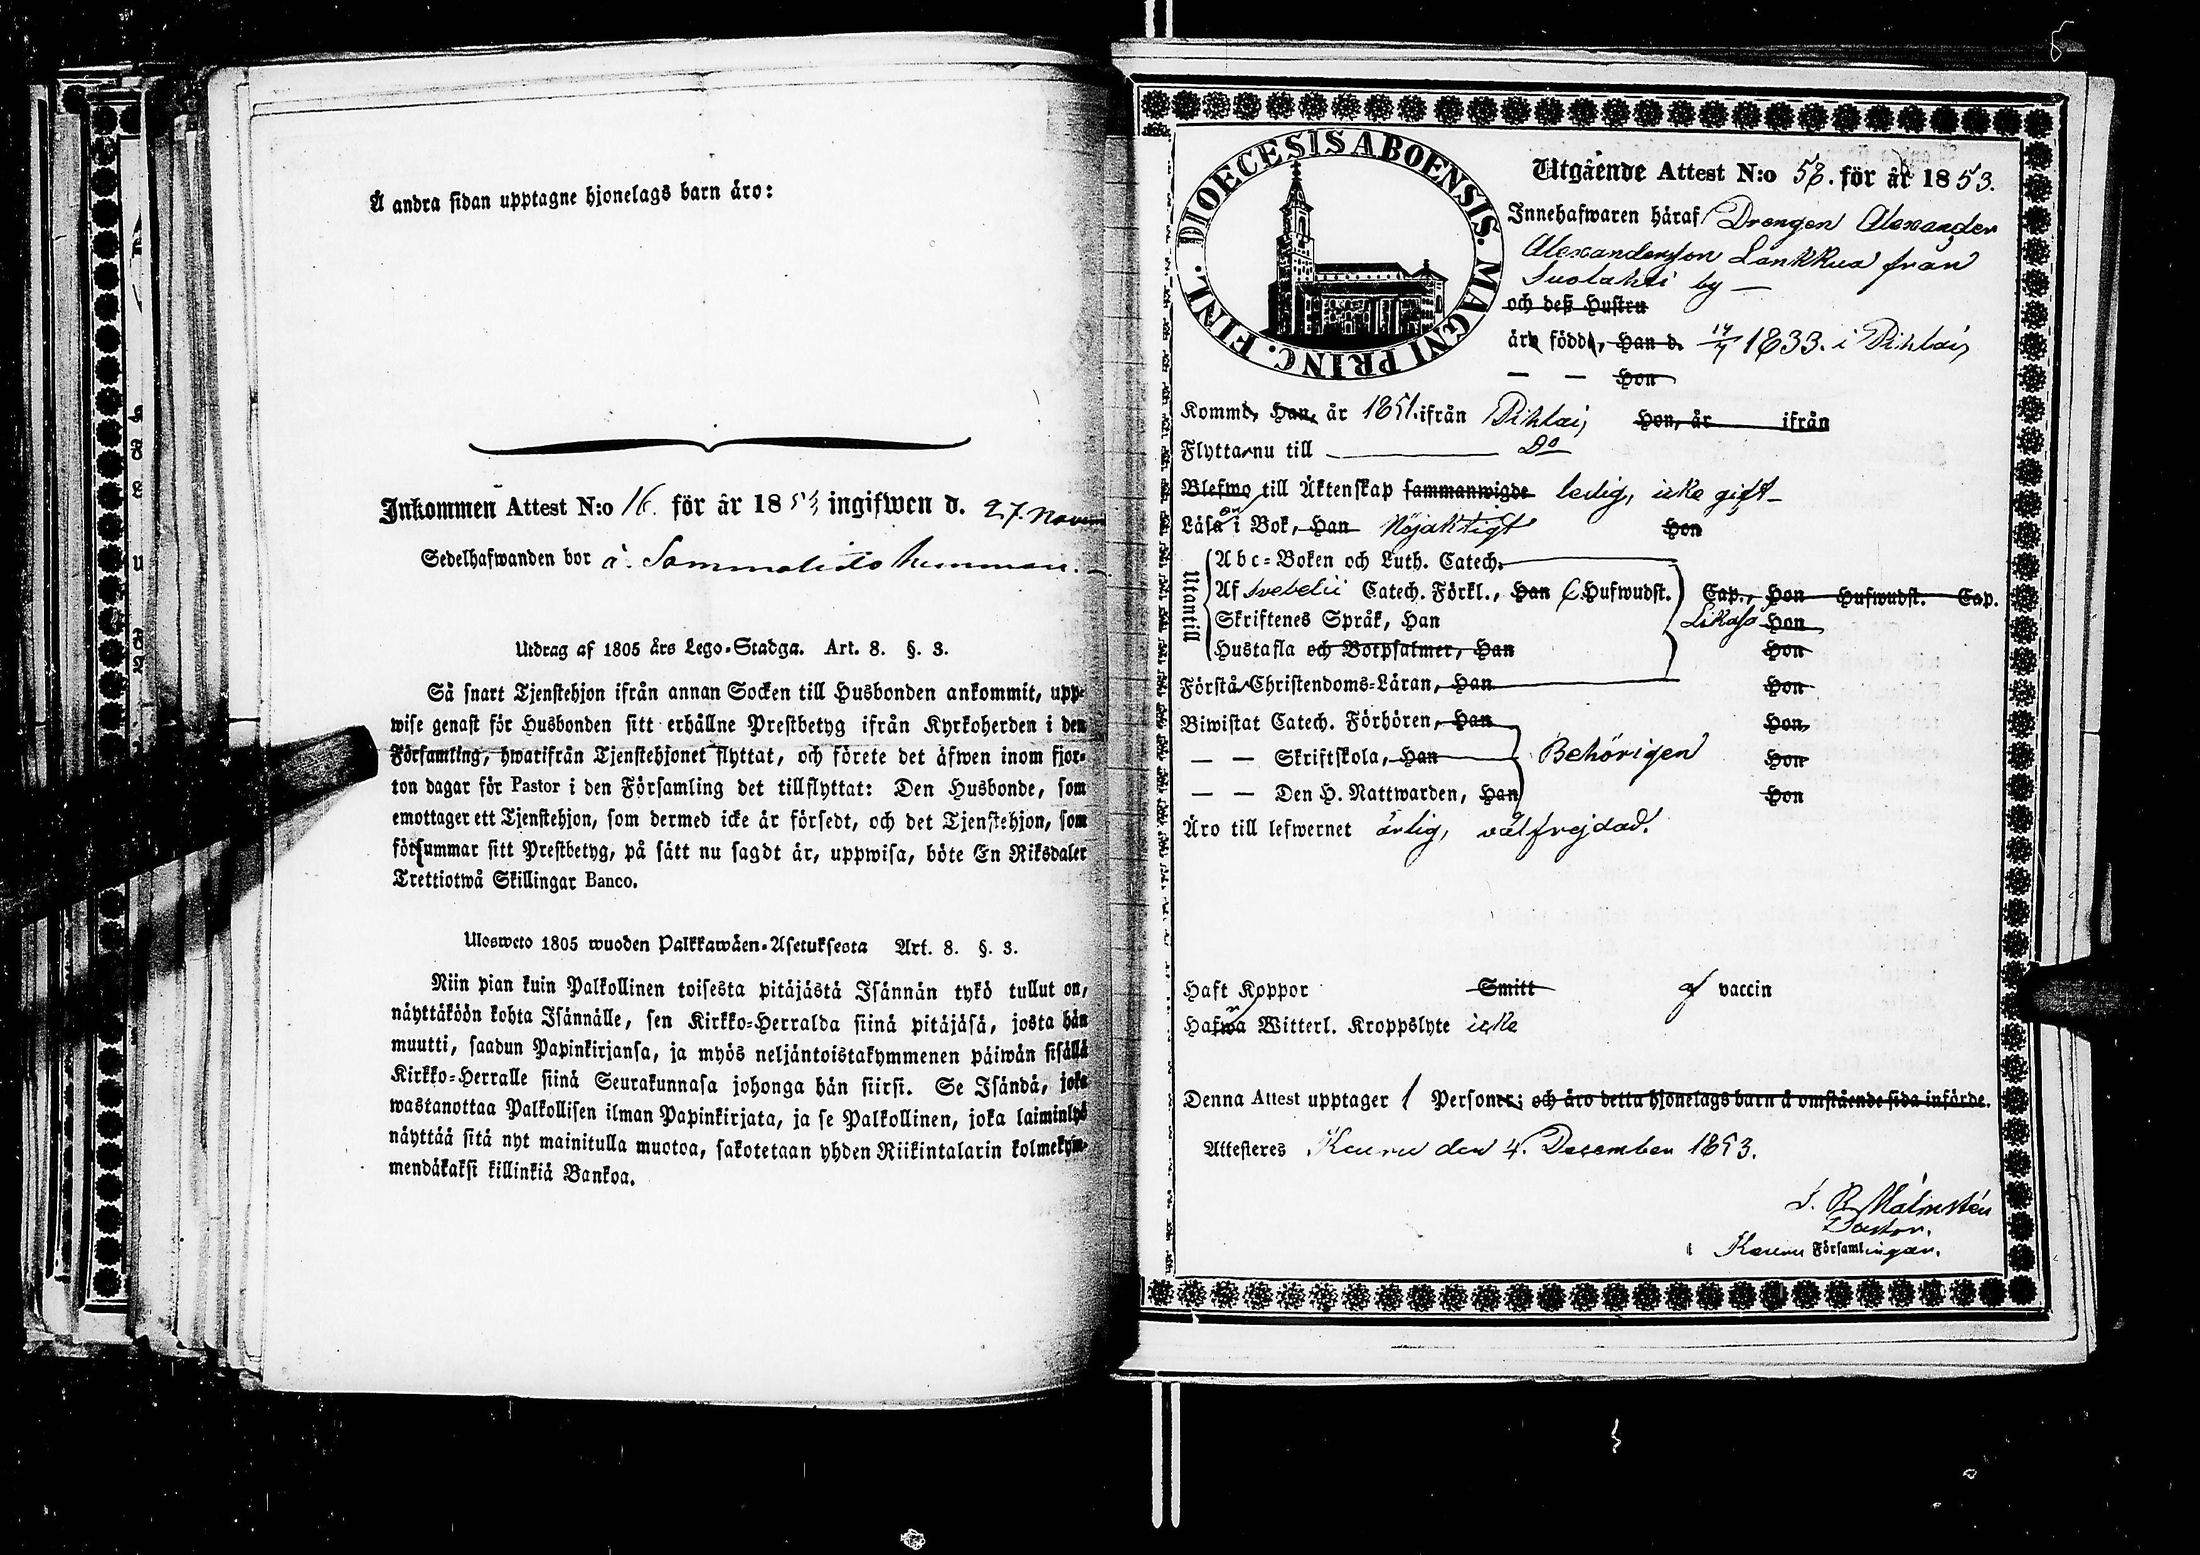 Å andra sidan upptagne hjonelags barn äro:
Inkommen Attest N:o 16. för år 1853 ingifwen d. 27. Novem
Sedelhafwanden bor å Sammalisto hemman.
Utdrag af 1805 års Lego-Stadga. Art. 8. §. 3.
Så snart Tjenstehjon ifrån annan Socken till Husbonden ankommit, upp-
wise genast för Husbonden sitt erhållne Prestbetyg ifrån Kyrkoherden i den
Församling, hwarifrån Tjenstehjonet flyttat, och förete det äfwen inom fjor-
ton dagar för Pastor i den Församling det tillflyttat: Den Husbonde, som
emottager ett Tjenstehjon, som dermed icke är försedt, och det Tjenstehjon, som
försummar sitt Prestbetyg, på sätt nu sagdt är, uppwisa, böte En Riksdaler
Trettiotwå Skillingar Banco.
Ulosweto 1805 wuoden Palkkawäen-Asetuksesta Art. 8. §. 3.
Niin pian kuin Palkollinen toisesta pitäjästä Isännän tykö tullut on,
näyttäköön kohta Isännälle, sen Kirkko-Herralda siinä pitäjäsä, josta hän
muutti, saadun Papinkirjansa, ja myös neljäntoistakymmenen päiwän sisällä
Kirkko-Herralle siinä Seurakunnasa johonga hän siirsi. Se Isändä, joka
wastanottaa Palkollisen ilman Papinkirjata, ja se Palkollinen, joka laiminlyö
näyttää sitä nyt mainitulla muotoa, sakotetaan yhden Riikintalarin kolmekym-
mendäkaksi killinkiä Bankoa.
DIOECESIS ABOENSIS. MAGNI PRINC. FINL.
Utgående Attest N:o 58. för år 1853.
Innehafwaren häraf Drengen Alexander
Alexandersson Lankkua från
Suolahti by —
och deß Hustru
äro födde, Han d. 14/7 1833. i Pihlaj,
— — Hon
Kommo, Han, år 1851. ifrån Pihlaj, Hon, år ifrån
Flytta nu till Do
Blefwo till Äktenskap sammanwigde ledig, icke gift
Läsa i Bok, Han Nöjaktigt Hon
Utantill
Abc-Boken och Luth. Catech.
Af Svebelii Catech. Förkl., Han 6 Hufwudst. Cap., Hon Hufwudst. Cap.
Skriftenes Språk, Han Likaså Hon
Hustafla och Botpsalmer, Han Hon
Förstå Christendoms-Läran, Han Hon
Biwistat Catech. Förhören, Han Hon
— — Skriftskola, Han Behörigen Hon
— — Den H. Nattwarden, Han Hon
Äro till lefwernet ärlig, välfrejdad.
Haft Koppor Smitt af vaccin
Hafwa Witterl. Kroppslyte icke
Denna Attest upptager 1 Personer; och äro detta hjonelags barn å omstående sida införde.
Attesteres Keuru den 4. December 1853.
Malmstén
Pastor.
i Keuru Församlingar.